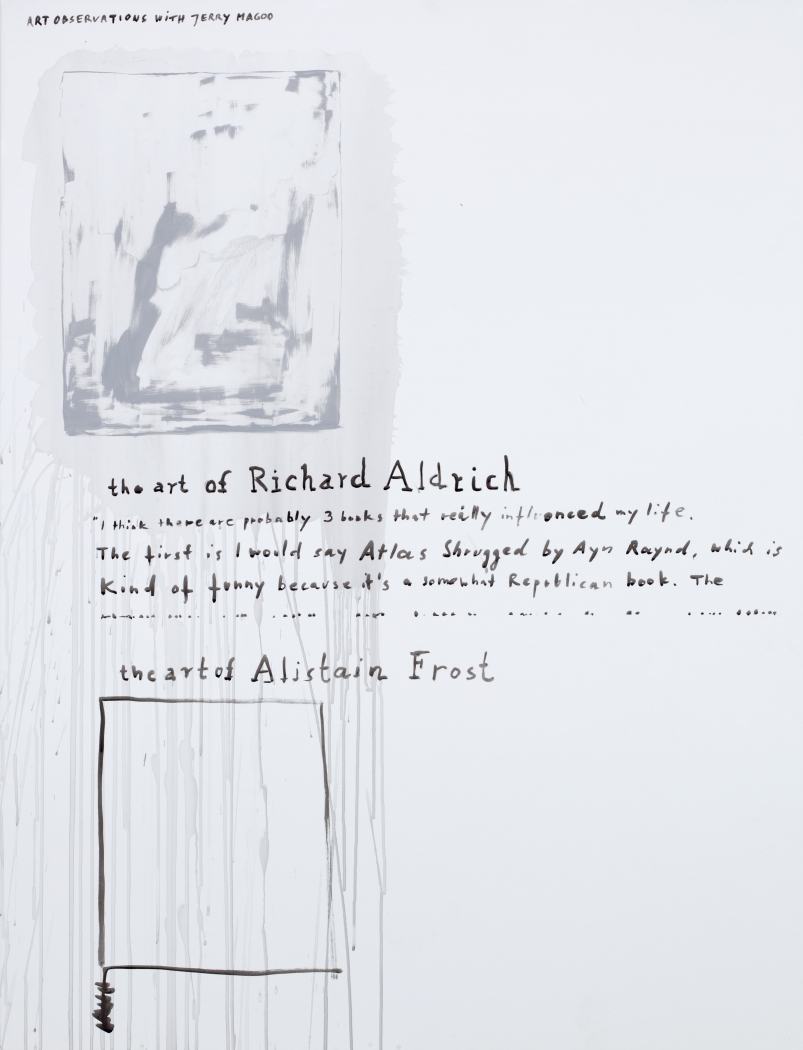 ART OBSERVATIONS WITH JERRY MAGOO
the art of Richard Aldrich
"I think there are probably 3 books that really influenced my life.
The first is I would say Atlas Shrugged by Ayn Raynd, which is
Kind of funny because it's a somewhat Republican book. The
the art of Alistain Frost